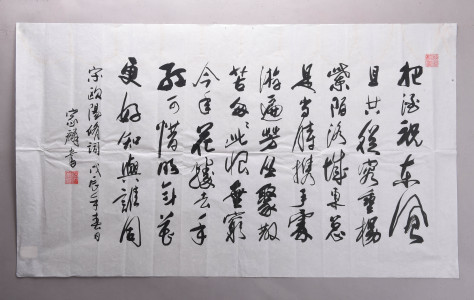 把酒祝东風
且共從容垂楊
紫陌洛城東总
是当時携手處
游遍芳丛聚散
苦匆匆此恨無窮
今年花勝去年
红可惜明年花
更好知與誰同
宋歐陽脩詞戊辰年春日
書